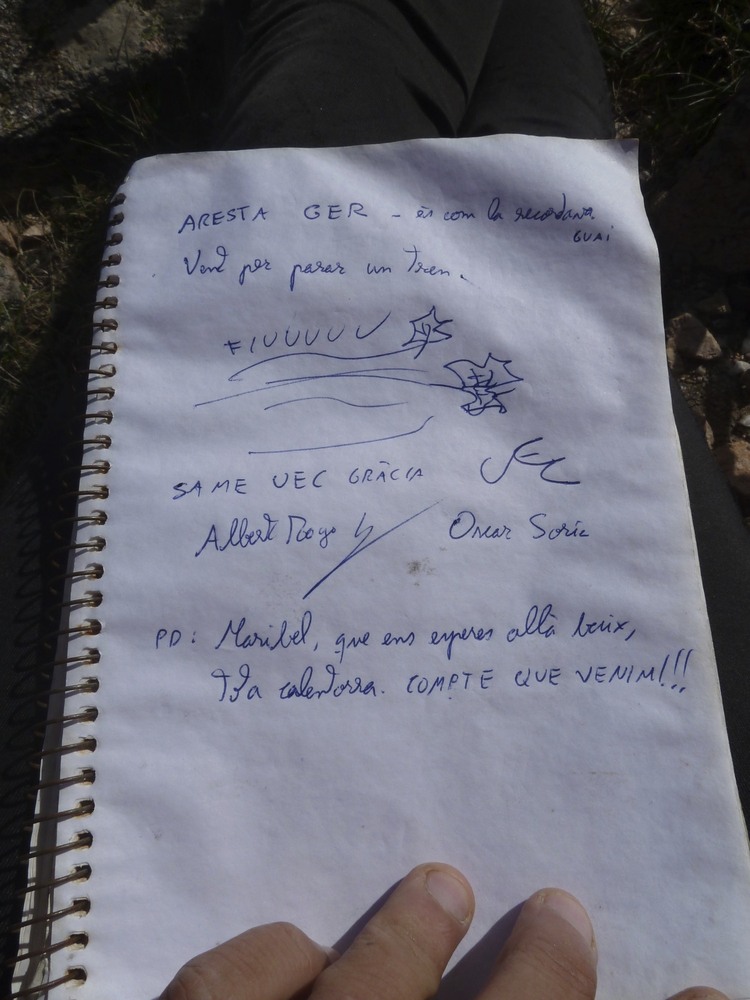 ARESTA GER - és com la recordava
GUAI
Vent per parar un tren.
FIUUUUU
SAME UEC GRÀCIA JEC
Albert Oscar Soria
PD: Maribel, que ens esperes allà baix,
calentorra. COMPTE QUE VENIM!!!